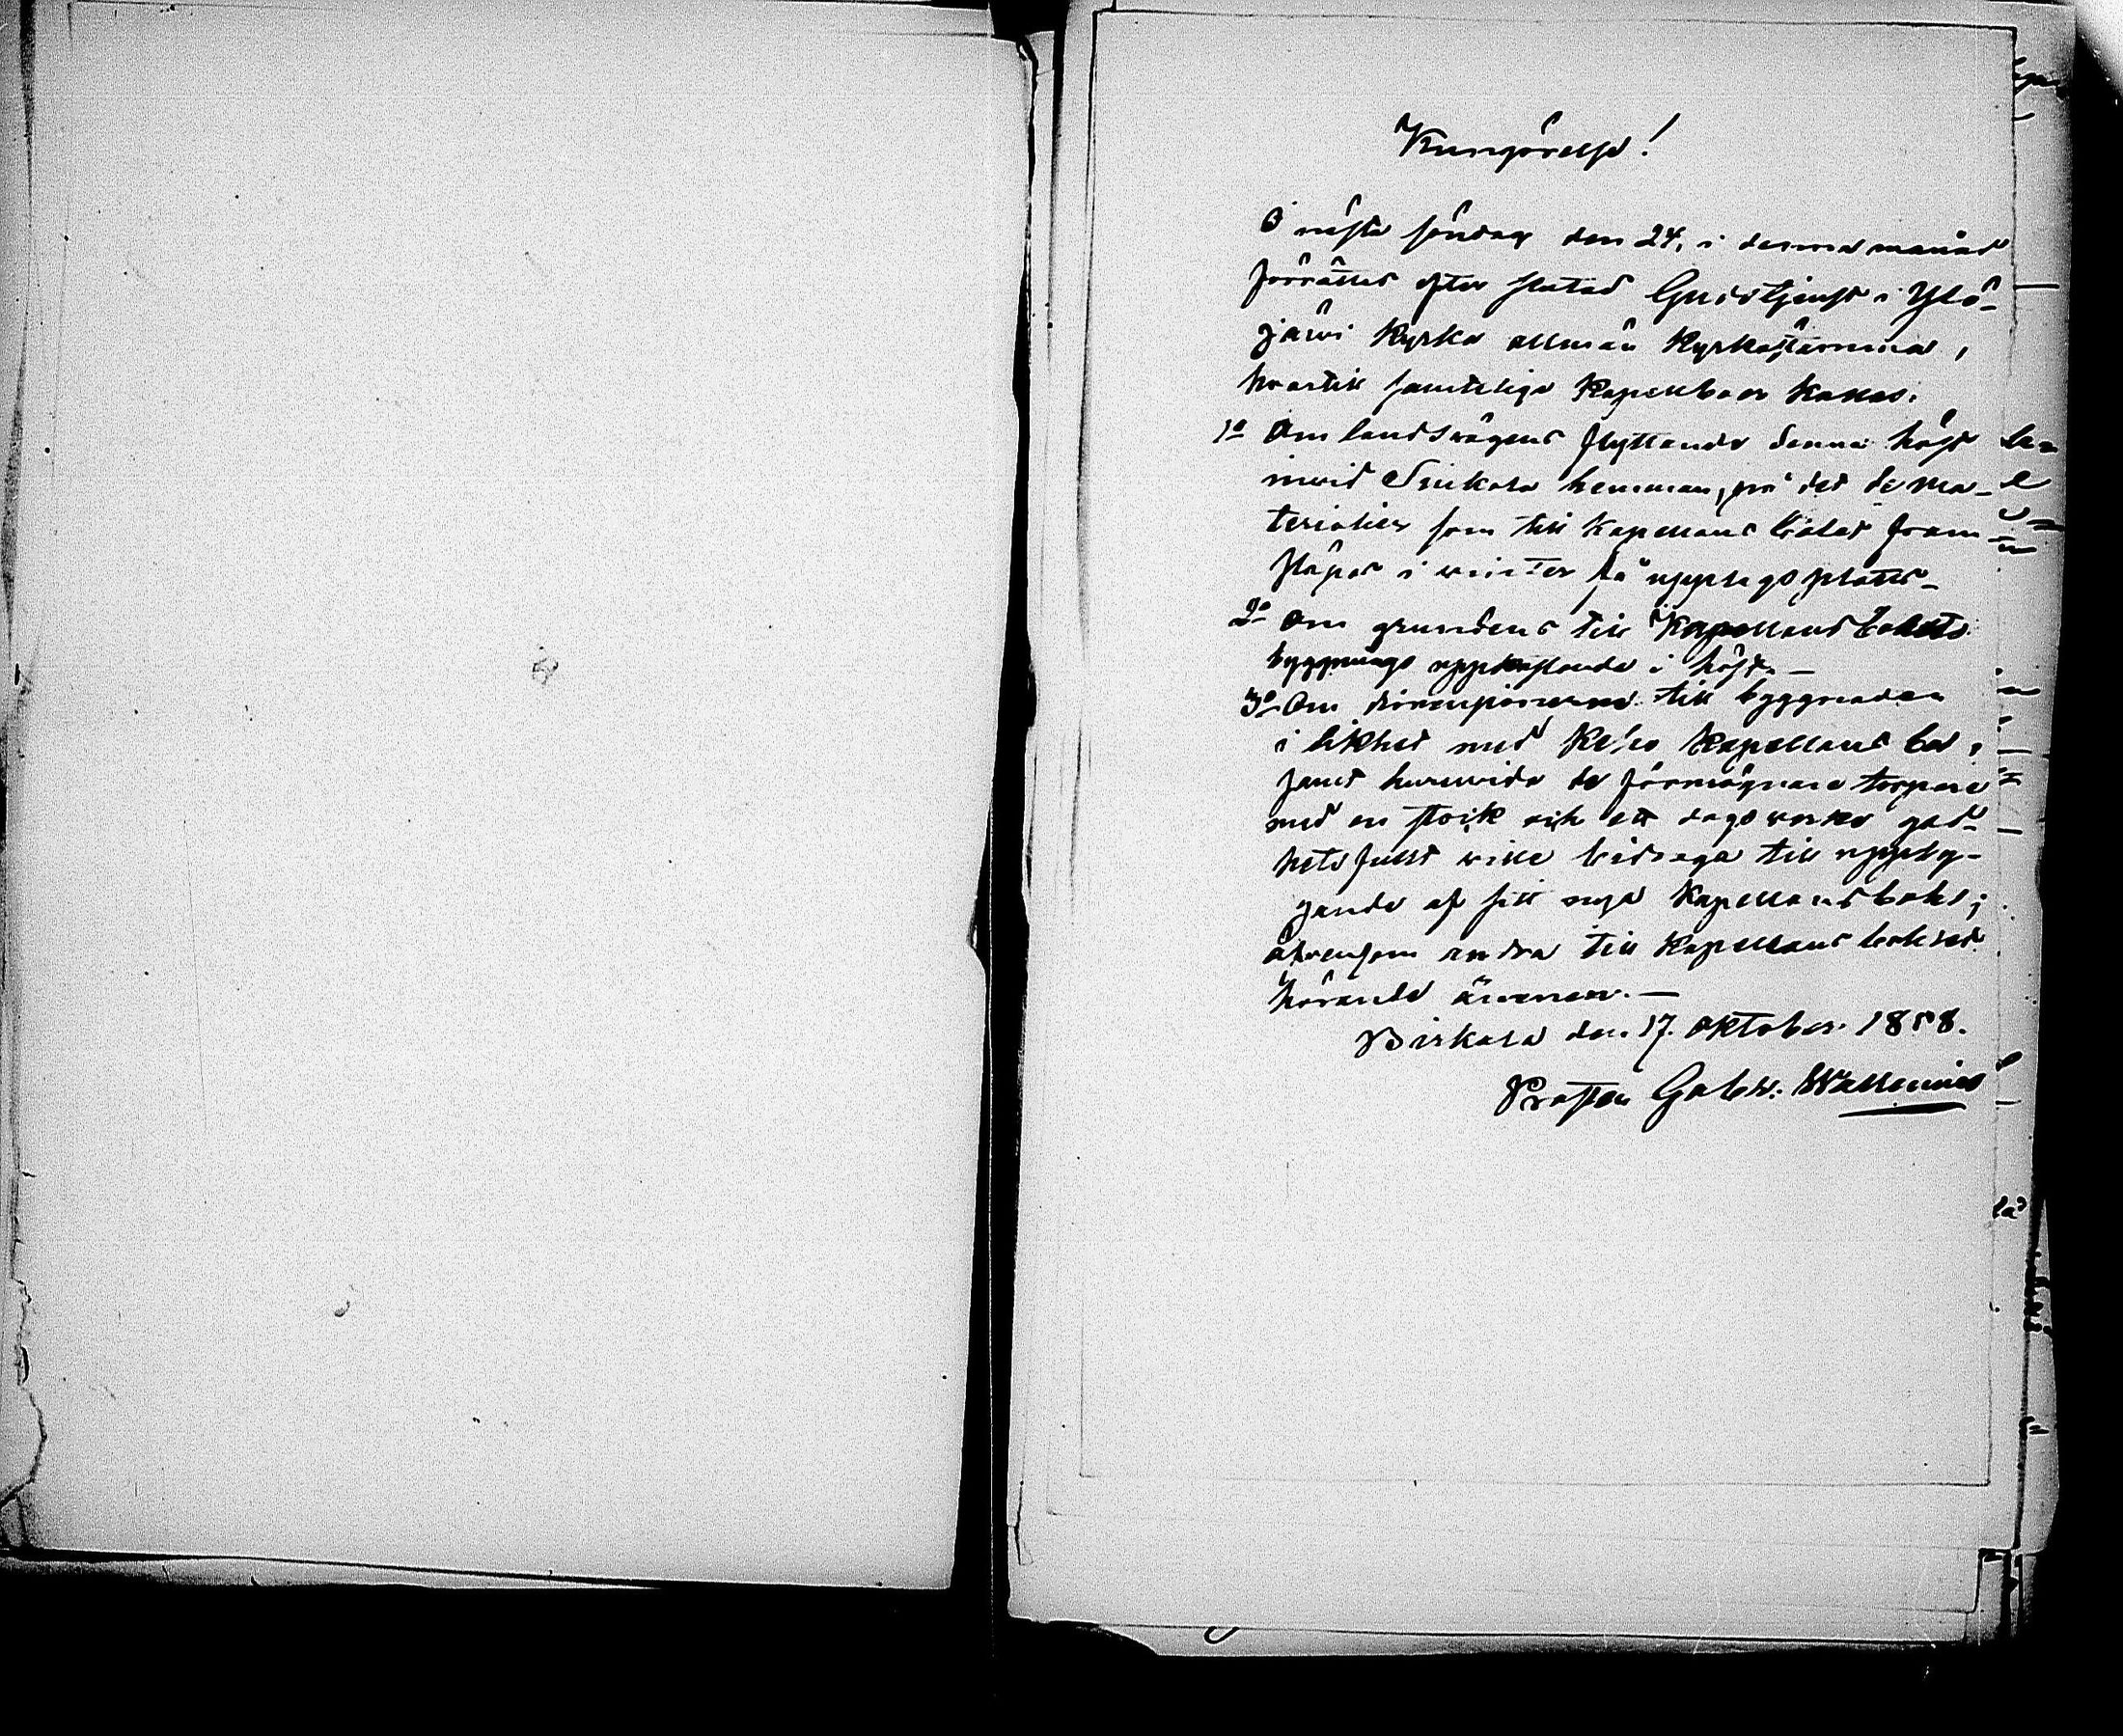 Kungörelse!
Å nästa söndag den 24. i denna månad
förrättas efter slutad Gudstjenst i Ylö-
järvi Kyrka allmän Kyrkostämma,
hvartill samtelige Kapellboer kallas.
1o Om landsvägens flyttande denna höst
invid Siukola hemman, på det de ma-
terialier som till Kapellans bolet fram-
släpas i winter få upplagsplats-
2o Om grundens till Kapellansbolets
byggnings uppkastande i höst. —
3o Om till byggnaden
i likhet med Kapellans bol,
samt huruvida de förmögnare torpare
med en stock och ett dagsverke god-
hetsfullt wille bidraga till uppbyg-
gande af sitt nya Kapellansbohl;
äfvensom andra till Kapellans bohlet
hörande ämnen. —
Birkala den 17. Oktober 1858.
Prosten Gabr. Wallenius